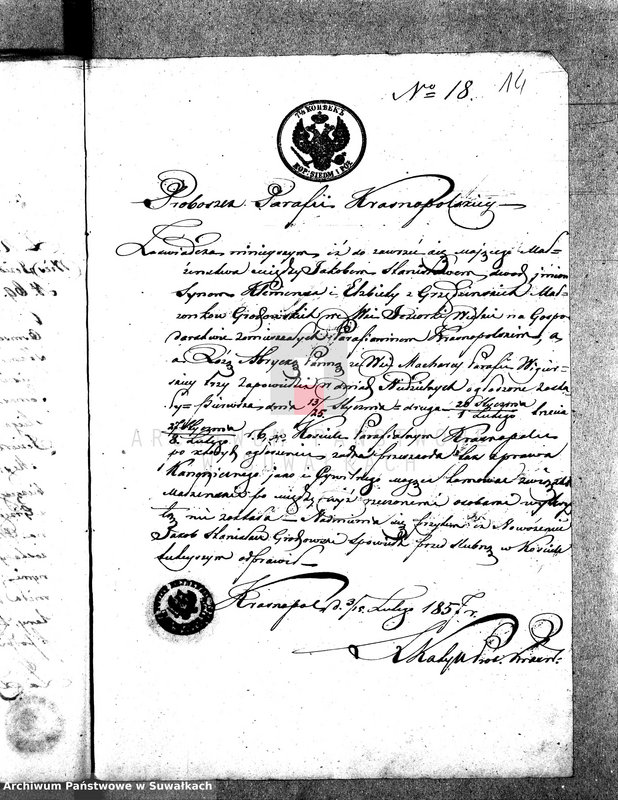 No 18. 14
7½ KOPEEKЪ
KOP. SIEDM I PÓŁ
Proboszcz Parafii Krasnopolskiey
Zaświadcza niniejszem iż do zawrzeć się mającego Mał-
żeństwa między Jakóbem Stanisławem dwóch imion
Synem Klemensa i Elżbiety z Małż-
żonków Grodzowskich we Wsi Jeziorki Wielkie na Gospo-
darstwie zamieszkałych Parafianinem Krasnopolskim, a
a Rózą Panną ze Wsi Macharcy Parafii Wigier-
skiey trzy zapowiedzie w dniach Niedzielnych ogłoszone zosta-
ły Pierwsza dnia 13/25 Stycznia druga 20 Stycznia/1 Lutego trzecia
27 Stycznia/8 Lutego r. b. w Kościele Parafialnym Krasnopolu
po których ogłoszeniu żadna przeszkoda tak z prawa
Kanonicznego jako i Cywilnego mogąca tamować związek
Małżeński po między wyż rzeczonemi osobami
nie została Nadmienia się przytem że Nowożeniec
Jakób Stanisław spowiedź przed ślubną w Kościele
tutejszym odprawił
Krasnopol d. 3/15 Lutego 1857 r.
ARCHIWUM
SUWAŁKACH
Archiwum Państwowe w Suwałkach